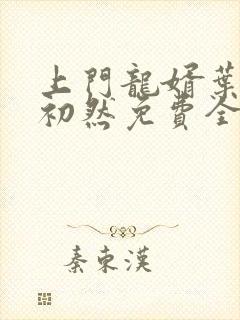 上門龍婿葉
初然免費全
秦東漢